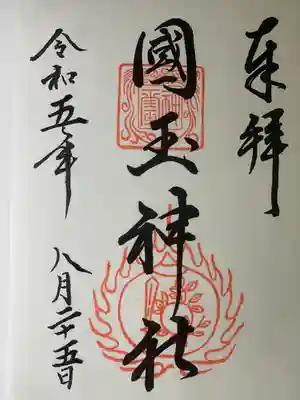 奉拝
國玉神社
令和五年 八月二十五日